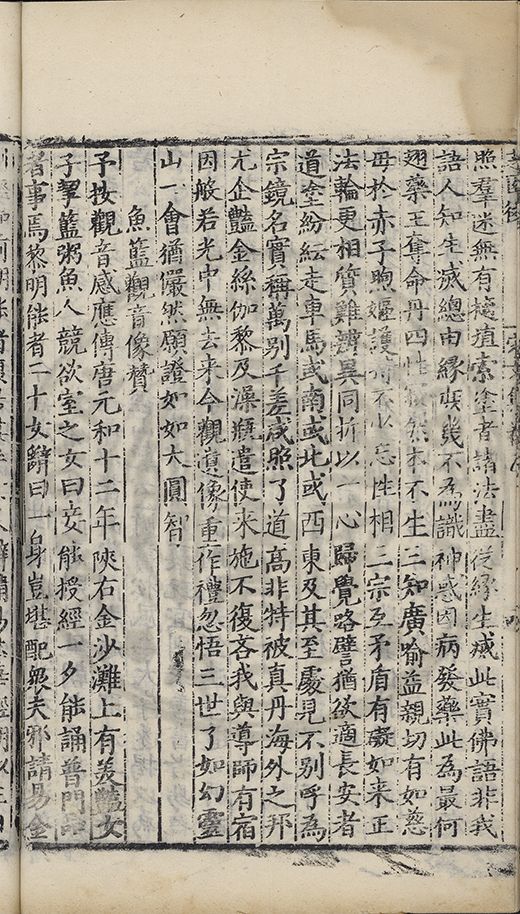 照羣迷無有擿埴索塗者諸法盡從緣生滅此實佛語非我
語人知生滅總由緣庶幾不為識神惑因病發藥此為最何
翅藥王奪命丹四性推然本不生三知廣喻益親切有如慈
母於赤子煦嫗護持不少忘性相二宗互矛盾有礙如来正
法輪更相質難辨異同折以一心歸覺路譬猶欲適長安者
道塗紛紜走車馬或南或北或西東及其至處見不別呼為
宗鏡名實稱萬別千差咸照了道高非特被真丹海外之邦
尤企豔金絲伽黎及澡瓶遣使来施不復吝我與導師有宿
因般若光中無去来今觀遺像重作禮忽悟三世了如幻靈
山一會猶儼然願證如如大圓智
魚籃觀音像贊
予按觀音感應傳唐元和十二年陝右金沙灘上有美豔女
子挈籃粥魚人競欲室之女曰妾能授經一夕能誦普門品
者事焉黎明能者二十女辭曰一身豈堪配衆夫邪請易金